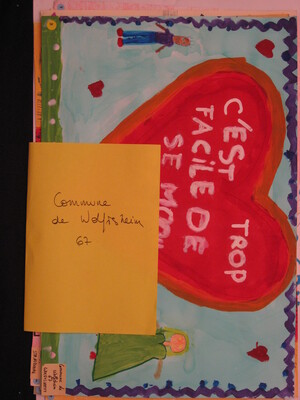 C'EST TROP
FACILE DE
SE
Commune
de Wolfisheim
67